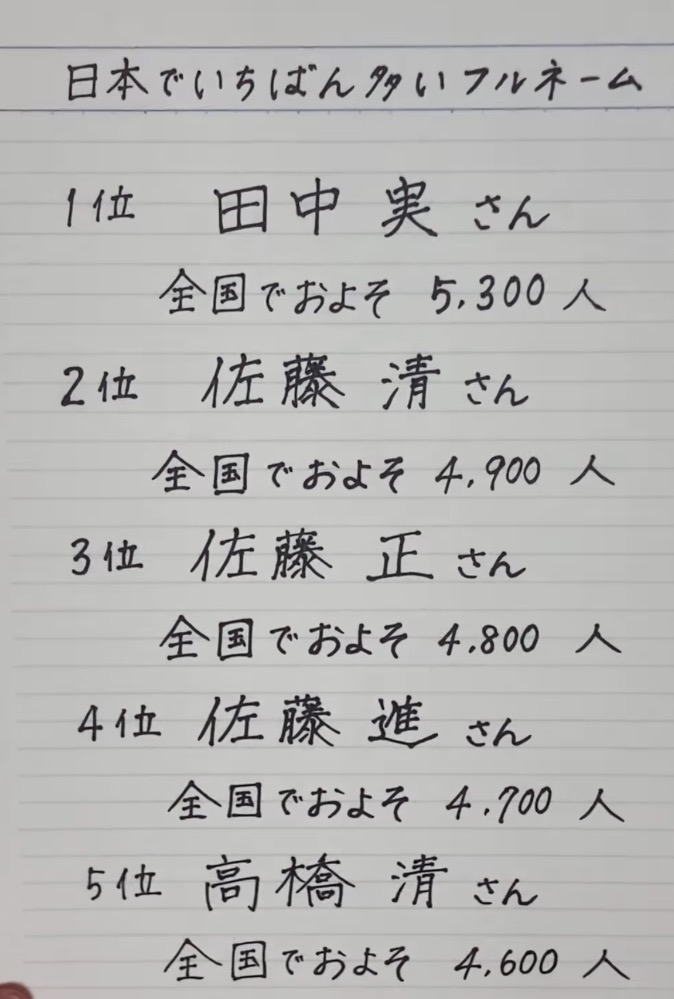 日本でいちばん多いフルネーム
1位 田中 実 さん
全国でおよそ 5,300 人
2位 佐藤 清 さん
全国でおよそ 4,900 人
3位 佐藤 正 さん
全国でおよそ 4,800 人
4位 佐藤 進 さん
全国でおよそ 4,700 人
5位 高橋 清 さん
全国でおよそ 4,600 人